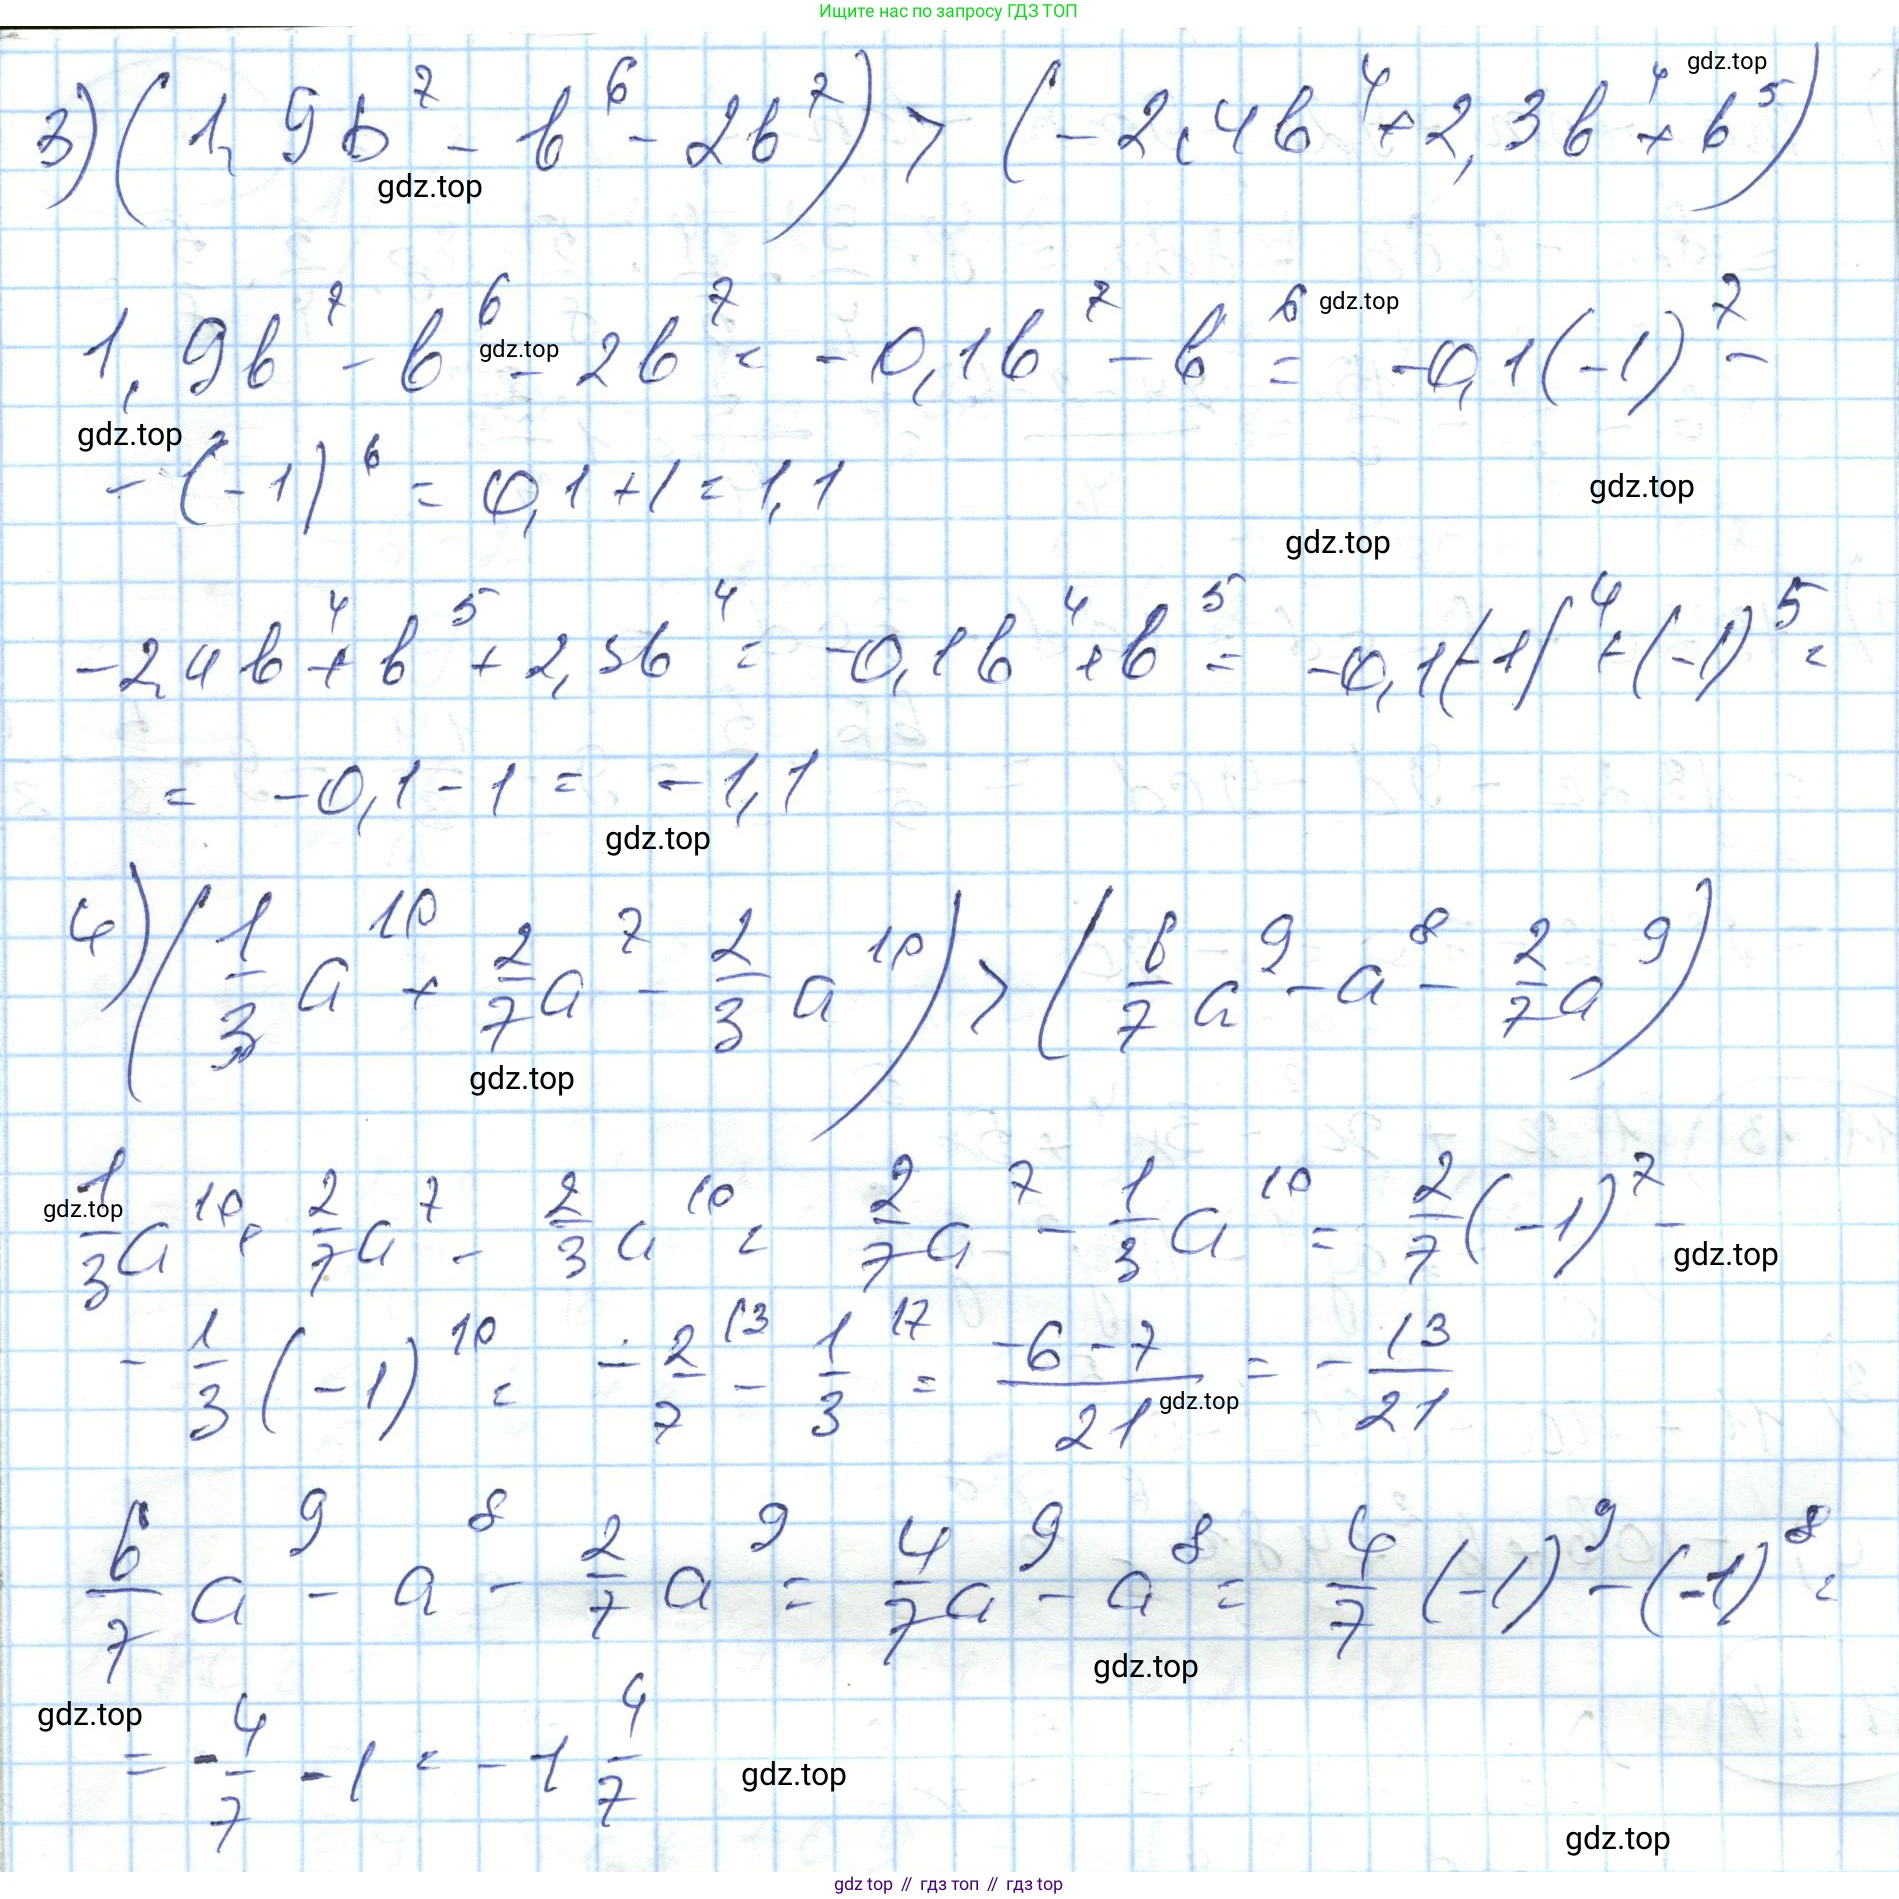 Ищите нас по запросу ГДЗ ТОП
gdz.top
3) (1,9b⁷ - b⁶ - 2b⁷) > (-2,4b⁴ + 2,3b⁴ + b⁵)
gdz.top
1,9b⁷ - b⁶ - 2b⁷ = -0,1b⁷ - b⁶ = -0,1(-1)⁷ -
gdz.top
gdz.top
gdz.top
- (-1)⁶ = 0,1 + 1 = 1,1
gdz.top
gdz.top
-2,4b⁴ + b⁵ + 2,3b⁴ = -0,1b⁴ + b⁵ = -0,1(-1)⁴ + (-1)⁵ =
= -0,1 - 1 = -1,1
gdz.top
4) (1/3 a¹⁰ + 2/7 a⁷ - 2/3 a¹⁰) > (6/7 a⁹ - a⁸ - 2/7 a⁹)
gdz.top
gdz.top
1/3 a¹⁰ + 2/7 a⁷ - 2/3 a¹⁰ = 2/7 a⁷ - 1/3 a¹⁰ = 2/7 (-1)⁷ -
gdz.top
- 1/3 (-1)¹⁰ = - 2/7 ⁽³ - 1/3 ⁽⁷ = -6-7/21 = - 13/21
gdz.top
6/7 a⁹ - a⁸ - 2/7 a⁹ = 4/7 a⁹ - a⁸ = 4/7 (-1)⁹ - (-1)⁸ =
gdz.top
gdz.top
= - 4/7 - 1 = -1 4/7
gdz.top
gdz.top
gdz top // гдз топ // гдз top